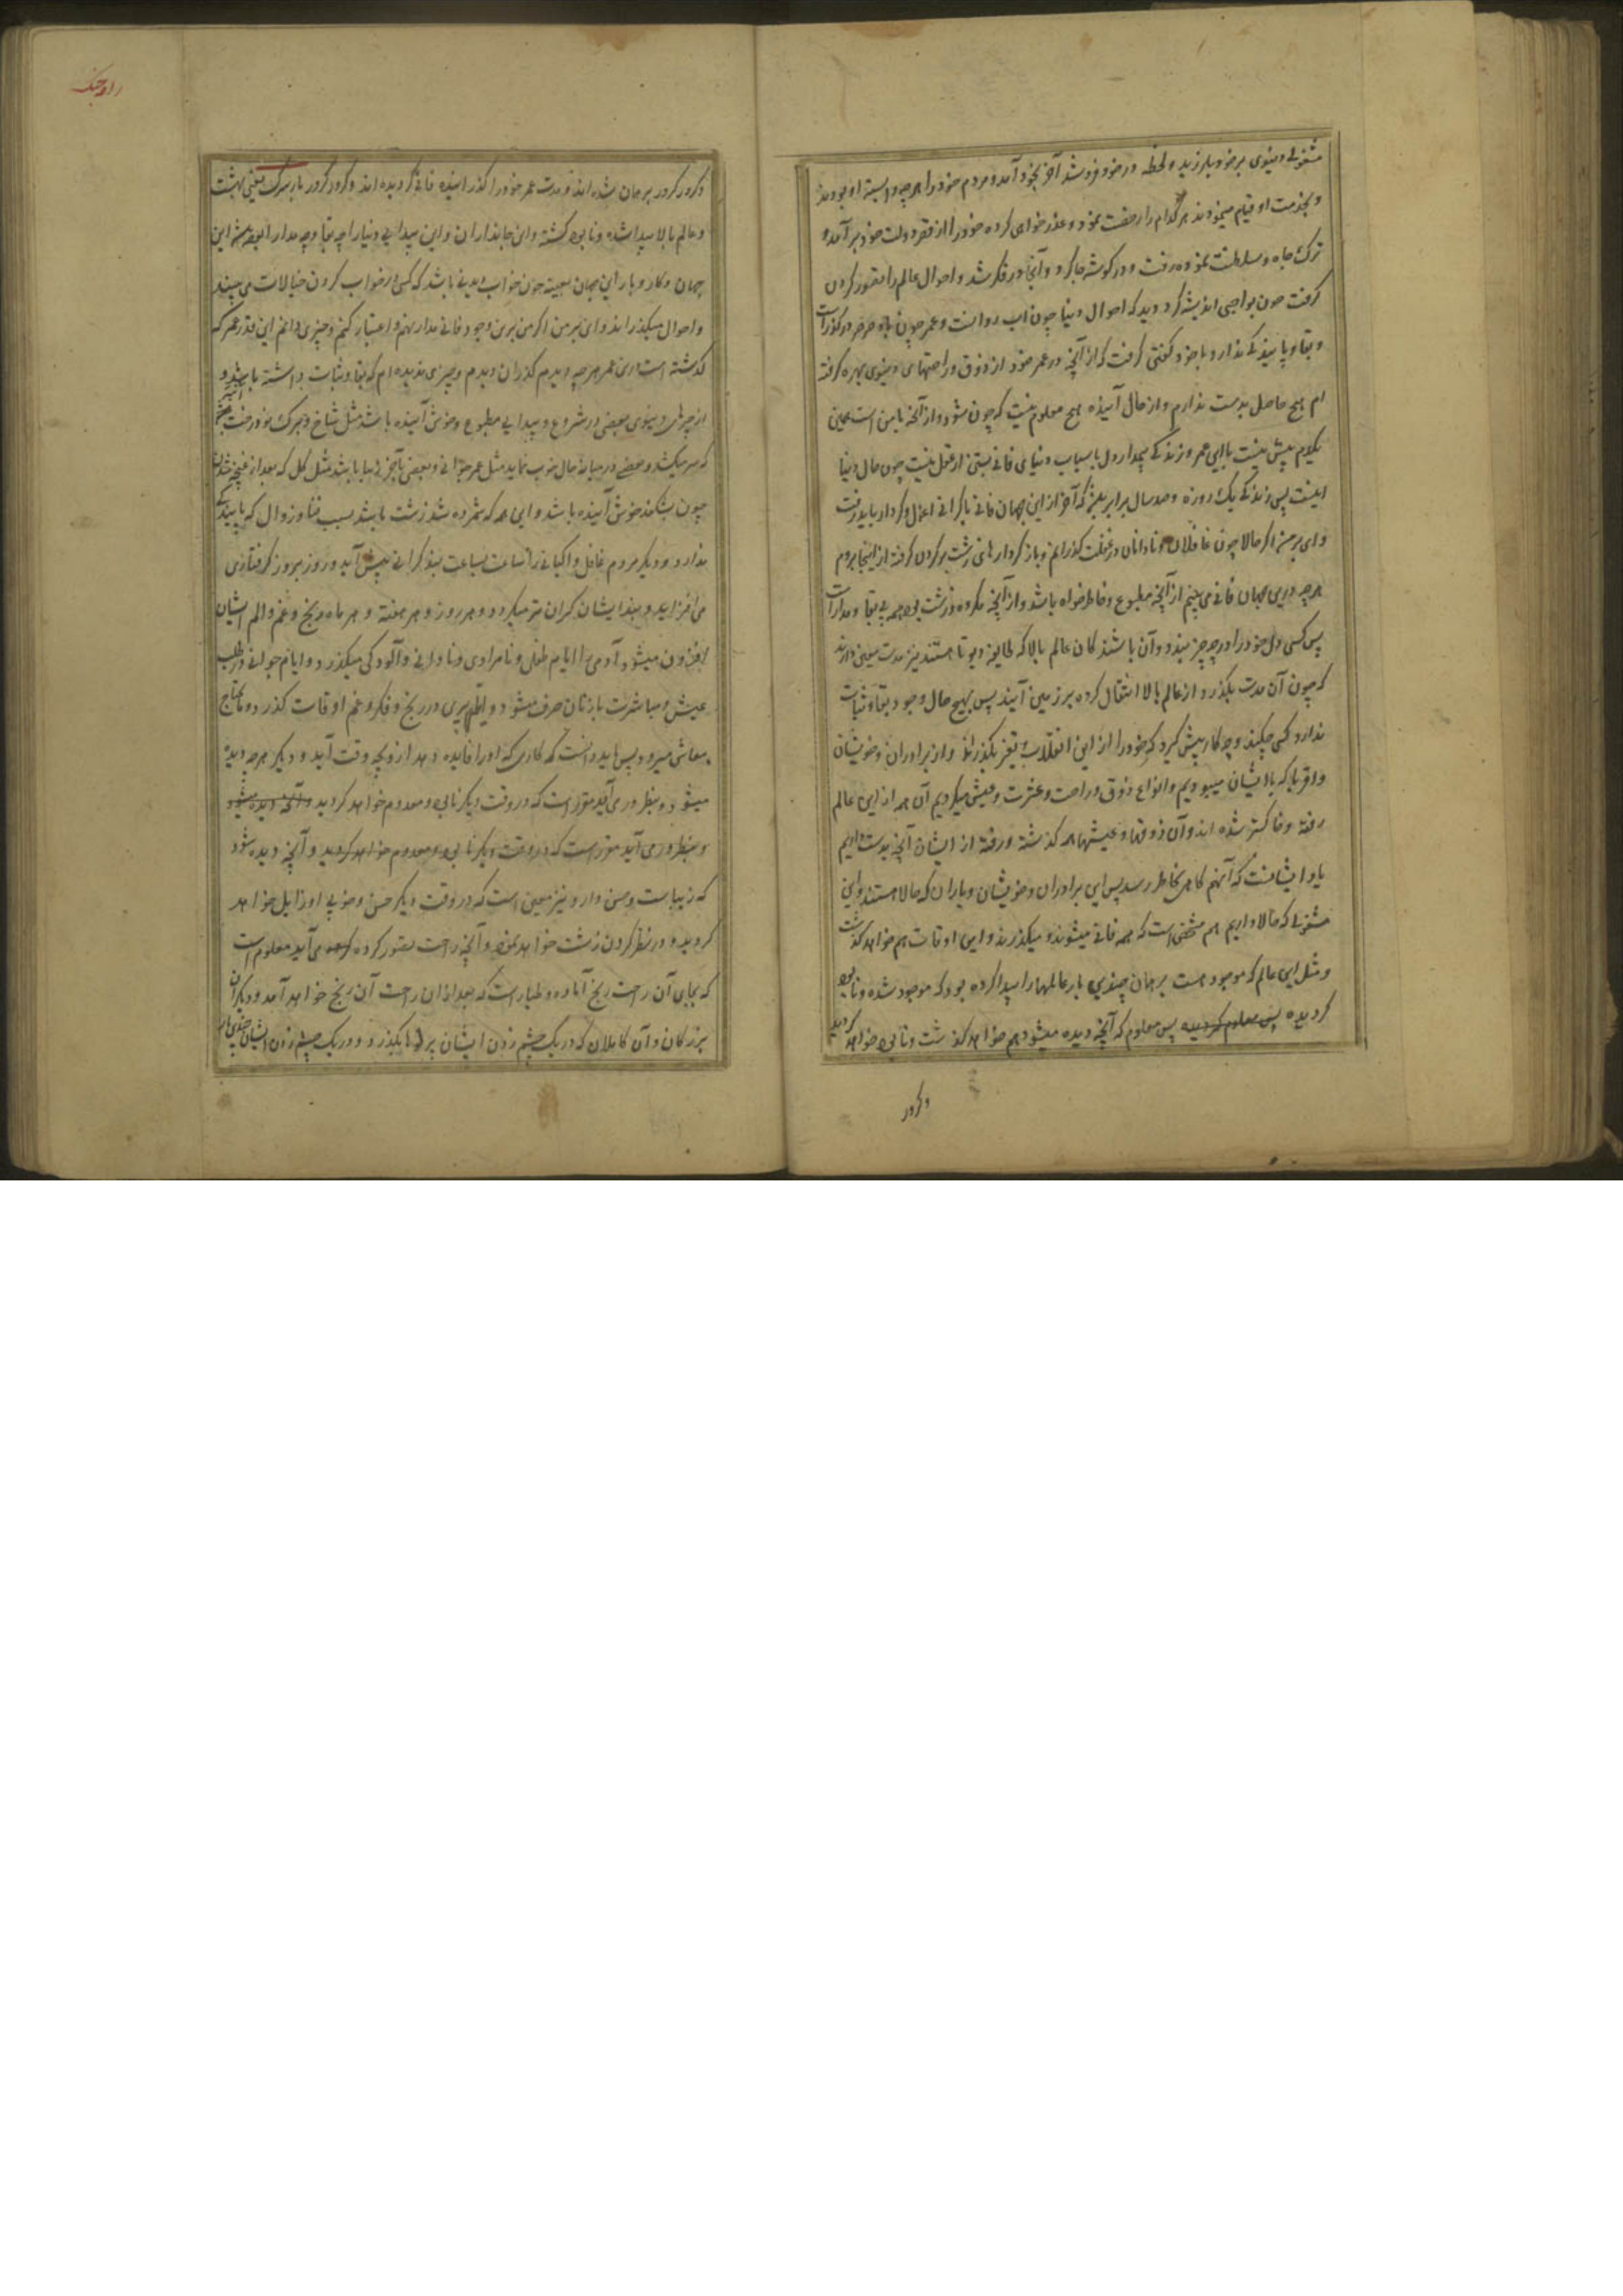 مشغولی دنیوی بر خود بلرزید و لحظه در خود فرو شد آخر بخود آمد و مردم خود را هر چه وابسته او بودند
و بخدمت او قیام مینمودند هر کدام را رخصت نمود و عذر خواهی کرده خود را از قصر دولت خود برآمده
ترک جاه و سلطنت نموده رفت و در گوشه جا کرد و آنجا در فکر شد و احوال عالم را تصور کردن
گرفت چون بواجبی اندیشه کرد دید که احوال دنیا چون آب روانست و عمر چون باد صرصر در گذر است
و بقا و پایندگی ندارد با خود گفتن گرفت که از آنچه در عمر خود از ذوق و راحتهای دنیوی بهره گرفته
ام هیچ حاصل بدست ندارم و از حال آینده هیچ معلوم نیست که چون شود و از آنچه با من است همین
یکدم پیش نیست با این عمر و زندگی بیمدار دل باسباب دنیای فانی بستن از عقل نیست چون حال دنیا
اینست پس زندگی یک روزه و صد سال برابر که آخر از این جهان فانی با گرانی اعمال و کردار باید رفت
وای بر من اگر حالا چون غافلان و نادانان در غفلت گذرانم و بار کردارهای زشت بر گردن گرفته از اینجا بروم
هر چه در این جهان فانی می بینم از آنچه مطبوع و خاطرخواه باشد و از آنچه مکروه و زشت بود همه بی بقا و مدار است
پس کسی دل خود را در چه چیز بندد و آن باشندگان عالم بالا که طایفه دیوتا هستند نیز مدت معین دارند
که چون آن مدت بگذرد از عالم بالا انتقال کرده بر زمین آیند پس بهیچ حال وجود بقا و ثبات
ندارد کسی چکند و چه کار پیش گیرد که خود را از این انقلاب و تغیر بگذراند و از برادران و خویشان
و اقربا که با ایشان میبودیم و انواع ذوق و راحت و عشرت و عیش میکردیم آن همه از این عالم
رفته و خاکستر شده اند و آن ذوقها و عیشها همه گذشته و رفته از ایشان آنچه بدست داریم
یاد ایشانست که آنهم گاهی بخاطر رسد پس این برادران و خویشان و یاران که حالا هستند و این
مشغولی که حالا داریم هم مشخص است که همه فانی میشوند و میگذرند و این اوقات هم خواهد گذشت
و مثل این عالم که موجود است برهمان چندین بار عالمها را پیدا کرده بود که موجود شده و نابود
گردیده پس معلوم گردید پس معلوم که آنچه دیده میشود هم خواهد گذشت و نابود خواهد گردید
و کرور
راوجنک
و کرور کرور برهمان شده اند و مدت عمر خود را گذرانیده فانی گردیده اند و کرور کرور بار سرگ یعنی بهشت
و عالم بالا پیدا شده و نابود گشته و این جانداران و این پیدایی دنیا را چه بقا و چه مدار
جهان و کار و بار این جهان بعینه چون خواب دیدنی باشد که کسی در خواب کردن خیالات می بیند
و احوال میگذراند و ای بر من اگر من برین وجود فانی مدار نهم و اعتبار کنم و چیزی دانم این قدر عمر که
گذشته است درین عمر هر چه دیدم گذران دیدم و چیزی ندیده ام که بقا و ثبات داشته باشد و
از چیزهای دنیوی بعضی در شروع و پیدایی مطبوع و خوش آینده باشد مثل شاخ و برگ نو درخت
که سر میکشد و بعضی در میانه حال خوب نماید مثل عمر جوانی و بعضی بآخر زیبا باشد مثل گل که بعد از غنچه شدن
چون بشگفد خوش آینده باشد و این همه که شمرده شد زشت باشد بسبب فنا و زوال که پایندگی
ندارد و دیگر مردم غافل و اگیانی را ساعت بساعت بند گرانی پیش آید و روز بروز گرفتاری
می افزاید و بند ایشان گران تر میگردد و هر روز و هر هفته و هر ماه رنج و غم و الم ایشان
افزون میشود آدمی را ایام طفلی و نامرادی و نادانی و آلودگی میگذرد و ایام جوانی در طلب
عیش و مباشرت با زنان صرف میشود و ایام پیری در رنج و فکر و غم اوقات گذرد و محتاج
معاش میرود پس باید دانست که کاری که او را فایده دهد ازو بچه وقت آید و دیگر هر چه دیده
میشود و بنظر در می آید مقرر است که در وقت دیگر نابود و معدوم خواهد گردید و آنچه دیده میشود
و بنظر در می آید مقرر است که در وقت دیگر نابود و معدوم خواهد گردید و آنچه دیده شود
که زیباست و حسن دارد نیز معین است که در وقت دیگر حسن و خوبی او زایل خواهد
گردید و در نظر کردن زشت خواهد نمود و آنچه راحت تصور کرده می آید معلوم است
که بجای آن راحت رنج آماده و طیار است که بعد از آن راحت آن رنج خواهد آمد و دیگر آن
بزرگان و آن کاملان که در یک چشم زدن ایشان بگذرد و در یک چشم زدن ایشان چندین بار